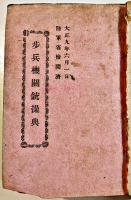 大正九年六月一日
陸軍省検閲済
歩兵機關銃操典